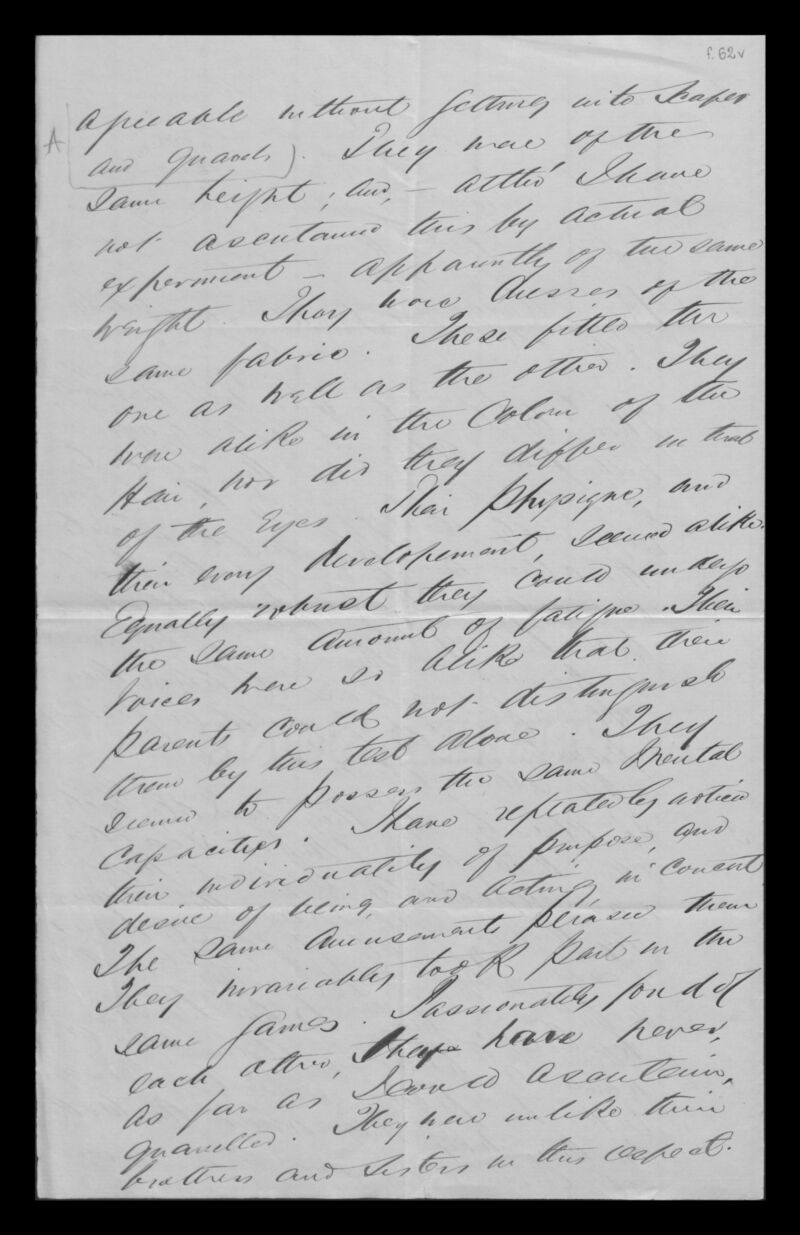 f. 62v
agreeable without getting into scrapes
A
and quarrels). They were of the
same height; and, – altho' I have
not ascertained this by actual
experiment – apparently of the same
weight. They wore dresses of the
same fabric. These fitted the
one as well as the other. They
were alike in the Colour of the
Hair, nor did they differ in that
of the Eyes. Their physique, and
their every developement, seemed alike.
Equally robust they could undergo
the same amount of fatigue. Their
voices were so alike that their
parents could not distinguish
them by this test alone. They
seemed to possess the same mental
Capacities. I have repeatedly noticed
their individuality of purpose, and
desire of being, and acting, in concert
The same amusements pleased them
They invariably took part in the
same games. Passionately fond of
each other, they have never,
as far as I could ascertain,
quarelled. They were unlike their
brothers and sisters in this respect.